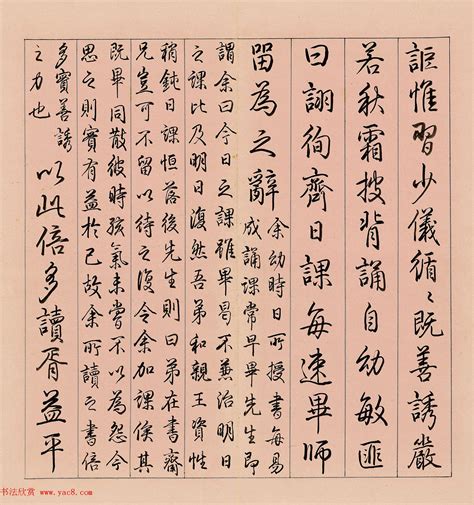 詎惟習少儀循〻既善誘嚴
若秋霜搜背誦自幼敏匪
曰詡徇齊日課每速畢師
留為之辭
余幼時日所授書每易
成誦課常早畢先生即
謂余曰今日之課雖畢曷不兼治明日
之課比及明日復然吾弟和親王資性
稍鈍日課恒落後先生則曰弟在書齋
兄豈可不留以待之復令余加課俟其
既畢同散彼時孩氣未嘗不以為怨今
思之則實有益於己故余所讀之書倍
多實善誘
之力也
以此倍多讀胥益平
书法欣赏 www.yac8.com